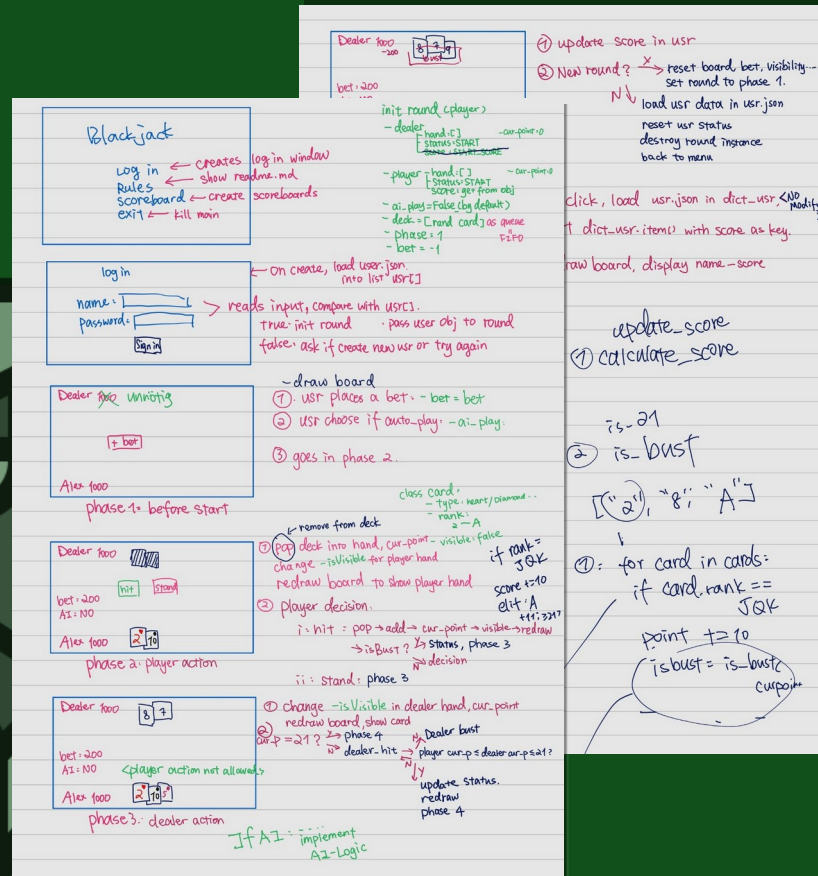 Dealer 1000
-200
8 7 9
bust
bet: 200
① update score in usr
② New round?
Y
→ reset board bet, visibility...
set round to phase 1.
N
load usr data in usr.json
reset usr status
destroy round instance
back to menu
click, load usr.json in dict_usr, <No Modify
dict_usr.item() with score as key.
raw board, display name-score
update_score
① calculate_score
is_21
② is_bust
["2", "8", "A"]
①: for card in cards:
if card.rank ==
JQK
point += 10
isbust = is_bust(
curpoint
Blackjack
Log in ← creates log in window
Rules ← show readme.md
scoreboard ← create scoreboards
exit ← kill main
init round (player)
- dealer
hand: [] - cur-point=0
status: START
score: START_SCORE
- player - hand: [] - cur-point=0
status: START
score: get from obj
- ai_play=False (by default)
- deck = [rand card] as queue
FIFO
- phase = 1
- bet = -1
log in
name:
password:
Sign in
← On create, load user.json.
into list usr[]
→ reads input, compare with usr[].
true: init round · pass user obj to round
false: ask if create new usr or try again
Dealer 1000 unnötig
+ bet
Alex 1000
phase 1: before start
- draw board
①. usr places a bet: - bet = bet
② usr choose if auto_play: - ai_play:
③ goes in phase 2.
class Card:
- type: heart/Diamond..
- rank:
2-A
Dealer 1000
hit stand
bet: 200
AI: NO
Alex 1000 2 10
phase 2: player action
remove from deck
① pop deck into hand, cur-point - visible: false
change -isVisible for player hand
redraw board to show player hand
if rank =
JQK
score += 10
elif A
+11: 321?
② player decision:
i: hit = pop → add → cur-point → visible → redraw
→ isBust? Y status, phase 3
N decision
ii: stand: phase 3
Dealer 1000 8 7
bet: 200
AI: NO <player action not allowed>
Alex 1000 2 10 5
phase 3: dealer action
① change -isVisible in dealer hand, cur_point
redraw board, show card
②
cur-p = 21? Y phase 4
N dealer_hit → player cur-p ≤ dealer cur-p ≤ 21?
N Dealer bust
Y
update status.
redraw
phase 4
If AI: implement
AI-Logic